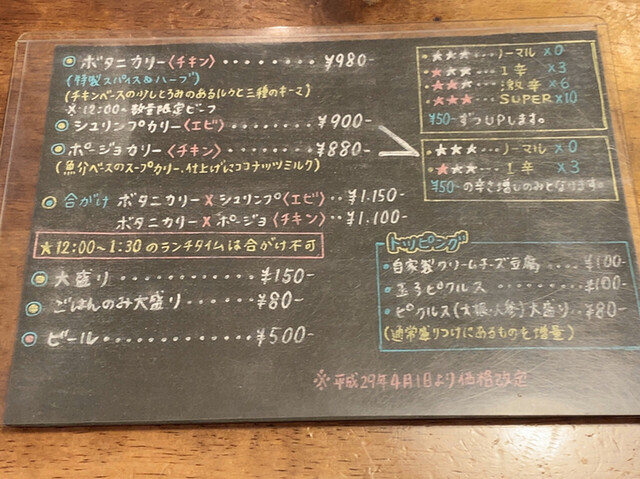 ボタニカリー〈チキン〉‥‥‥‥¥980-
(特製スパイス&ハーブ)
(チキンベースの少しとろみのあるルウと三種のキーマ)
※12:00~数量限定ビーフ
シュリンプカリー〈エビ〉‥‥‥‥¥900-
ポージョカリー〈チキン〉‥‥‥‥¥880-
(魚介ベースのスープカリー、仕上げにココナッツミルク)
合がけ ボタニカリー×シュリンプ〈エビ〉‥¥1.150-
ボタニカリー×ポージョ〈チキン〉‥¥1.100-
★12:00~1:30のランチタイムは合がけ不可
大盛り‥‥‥‥‥‥¥150-
ごはんのみ大盛り‥‥‥¥80-
ビール‥‥‥‥‥‥¥500-
★★★…ノーマル×0
★★★…1辛×3
★★★…激辛×6
★★★…SUPER×10
¥50-ずつUPします。
★★★…ノーマル×0
★★★…1辛×3
¥50-の辛さ増しのみとなります。
トッピング
・自家製クリームチーズ豆腐‥‥¥100-
・玉子ピクルス‥‥‥‥¥100-
・ピクルス(大根・人参)大盛り‥¥80-
(通常盛りつけにあるものを増量)
※平成29年4月1日より価格改定